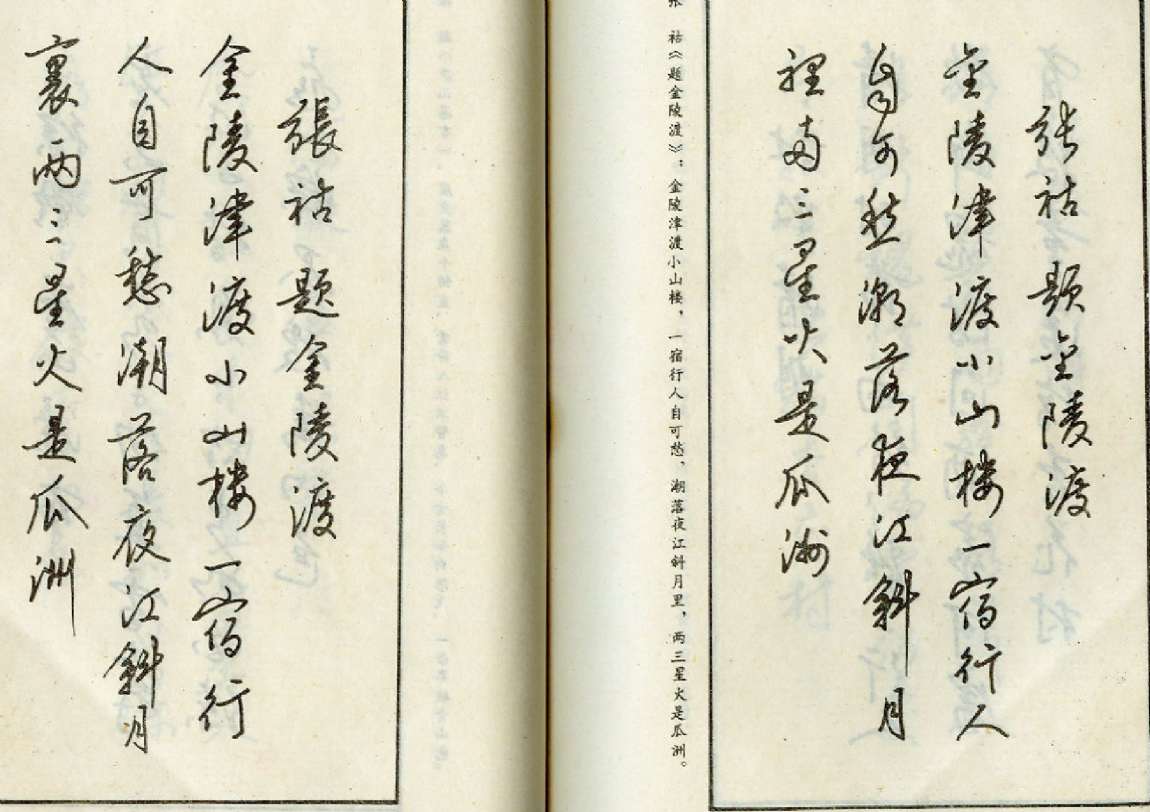 张祜题金陵渡
金陵津渡小山楼一宿行人
自可愁潮落夜江斜月
裡两三星火是瓜洲
张 祜《题金陵渡》：金陵津渡小山楼，一宿行人自可愁，潮落夜江斜月里，两三星火是瓜洲。
張祜题金陵渡
金陵津渡小山楼一宿行
人自可愁潮落夜江斜月
裏两三星火是瓜洲